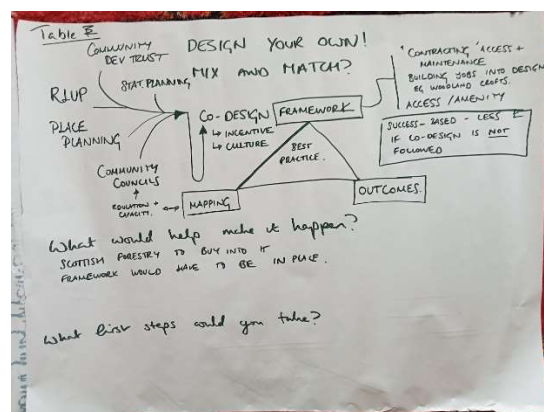 Table
DESIGN YOUR OWN!
MIX AND MATCH?
COMMUNITY
DEV TRUST
STAT. PLANNING
RLUP
PLACE
PLANNING
COMMUNITY
COUNCILS
EDUCATION +
CAPACITY.
CO-DESIGN
↳ INCENTIVE
↳ CULTURE
FRAMEWORK
BEST
PRACTICE.
MAPPING
OUTCOMES.
"CONTRACTING" ACCESS +
MAINTENANCE
BUILDING JOBS INTO DESIGN
EG WOODLAND CROFTS.
ACCESS / AMENITY
SUCCESS-BASED - LESS £
IF CO-DESIGN IS NOT
FOLLOWED
What would help make it happen?
SCOTTISH FORESTRY TO BUY INTO IT
FRAMEWORK WOULD HAVE TO BE IN PLACE.
What first steps could you take?